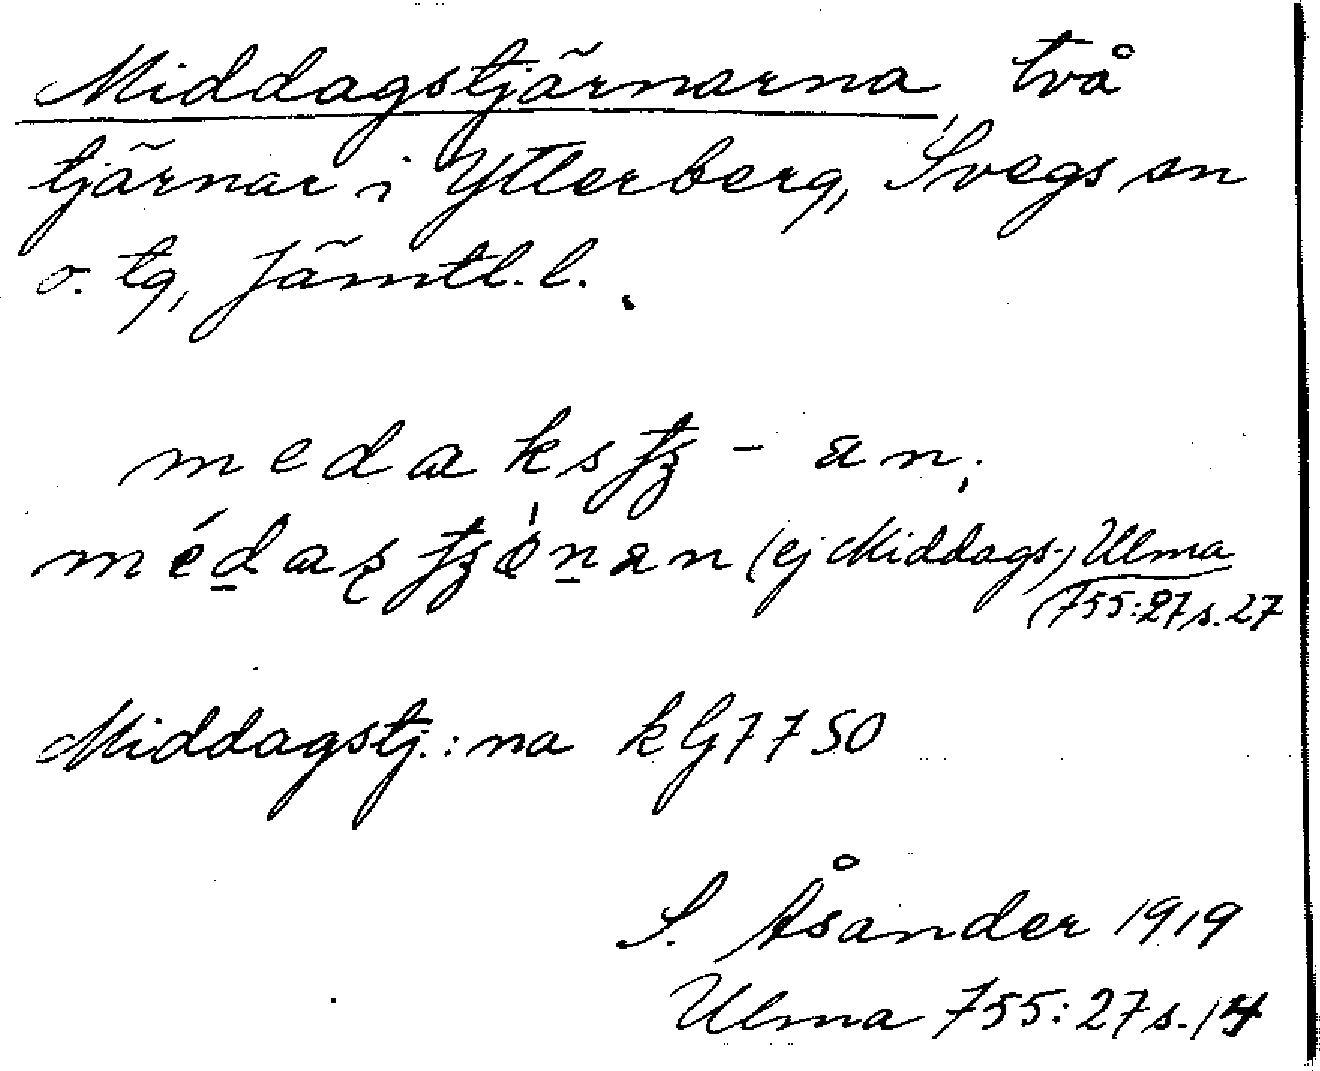 Middagstjärnarna, två
tjärnar i Ytterberg, Svegs sn
o. tg, Jämtl. l.
medakstʒ - an;
médaʂtʒǿnan (ej Middags-) Ulma
755:27 s. 27
Middagstj.:na kG7750
S. Åsander 1919
Ulma 755:27 s. 14